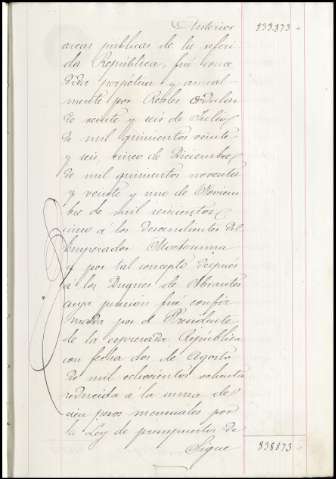 Anterior 938,873 "
arcas publicas de la referi-
da República, fué conce-
dida perpétua y anual
mente por Reales Cédulas
de veinte y seis de Julio
de mil quinientos veinte
y seis, cinco de Diciembre
de mil quinientos noventa
y veinte y uno de Noviem
bre de mil seiscientos
cinco a los Descendientes del
Emperador Moctezuma
y por tal concepto después
a los Duques de Abrantes
cuya pensión fué confir
mada por el Presidente
de la espresada República
con fecha dos de Agosto
de mil ochocientos ochenta
reducida a la suma de
cien pesos mensuales por
la Ley de presupuestos de
Sigue 938,873 "